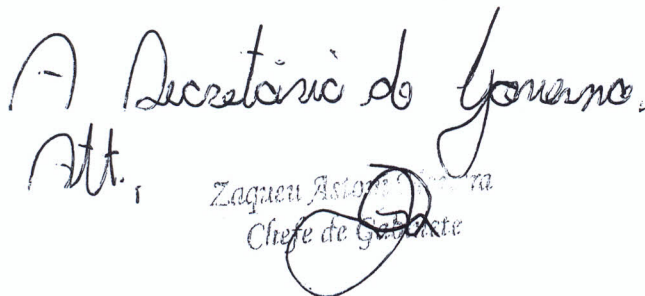 A Secretária de Governo.
Att.,
Zaqueu Astoni
Chefe de Gabinete